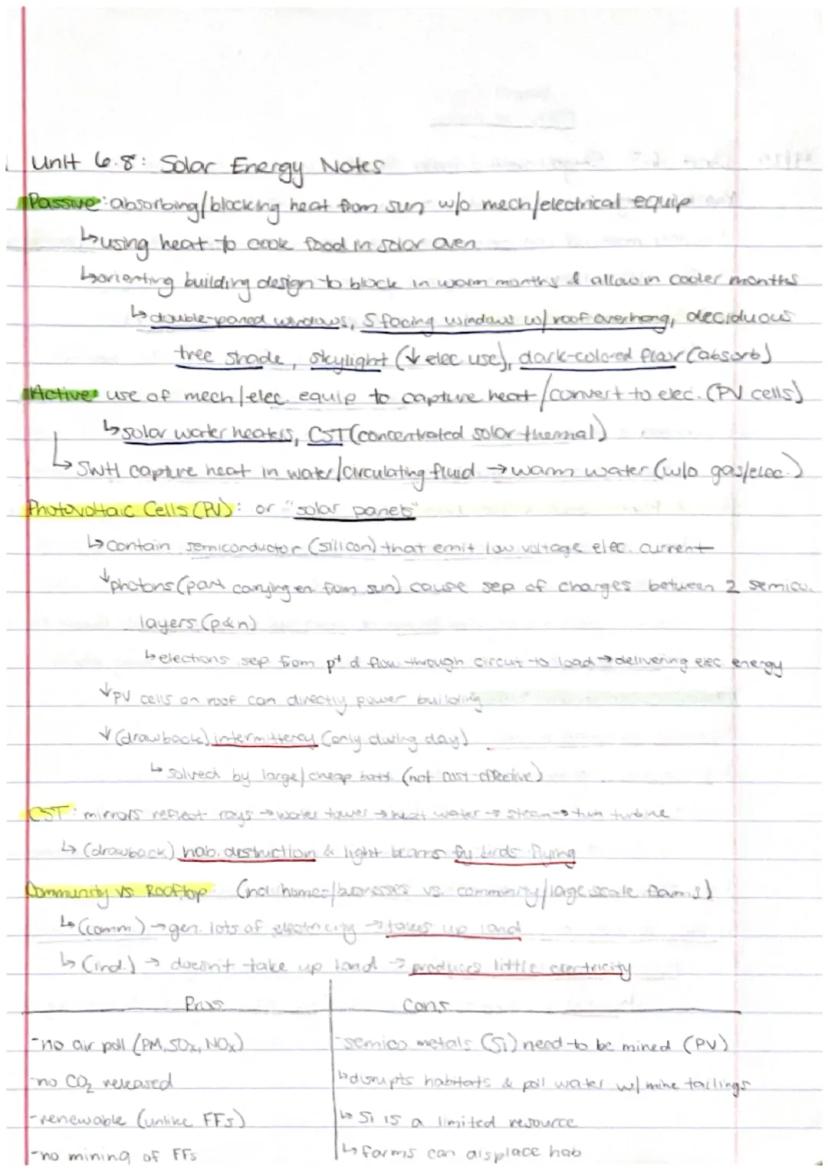 Unit 6.8: Solar Energy Notes
Passive: absorbing/blocking heat from sun w/o mech/electrical equip
↳using heat to cook food in solar oven
↳orienting building design to block in warm months & allow in cooler months
↳double-paned windows, S facing windows w/ roof overhang, deciduous
tree shade, skylight (↓ elec use), dark-colored floor (absorb)
Active: use of mech/elec. equip to capture heat/convert to elec. (PV cells)
↳solar water heaters, CST (concentrated solar thermal)
↳SWH capture heat in water/circulating fluid → warm water (w/o gas/elec.)
Photovoltaic Cells (PV): or "solar panels"
↳contain semiconductor (silicon) that emit low voltage elec. current
↓photons (part carrying en from sun) cause sep of charges between 2 semico.
layers (p&n)
↳electrons sep from p⁺ & flow through circut to load → delivering elec energy
↓PV cells on roof can directly power building
↓(drawback) intermittency (only during day)
↳solved by large/cheap batt. (not cost-effective)
CST: mirrors reflect rays → water tower → heat water → steam → turn turbine
↳(drawback) hab. destruction & light beams fry birds flying
Community vs Rooftop: (ind homes/businesses vs. community/large scale farms)
↳(comm.) → gen. lots of electricity → takes up land
↳(ind.) → doesn't take up land → produces little electricity
Pros Cons
-no air poll (PM, SOx, NOx) -semico metals (Si) need to be mined (PV)
-no CO₂ released ↳disrupts habitats & poll water w/ mine tailings
-renewable (unlike FFs) ↳Si is a limited resource
-no mining of FFs ↳farms can displace hab